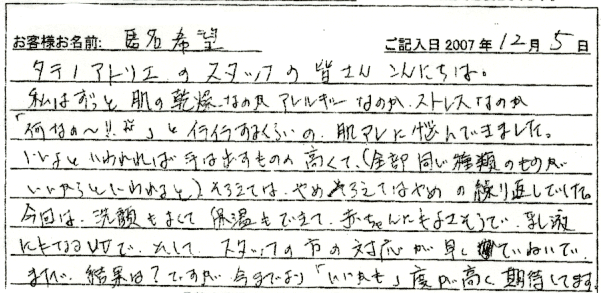 お客様お名前: 匿名希望 ご記入日 2007年 12月 5日
タテノアトリエのスタッフの皆さん こんにちは。
私はずっと肌の乾燥なのか アレルギーなのか、ストレスなのか
「何なの〜!!」と 行するくらいの 肌アレに悩んできました。
いいよと いわれれば 手は出すものの 高くて、(全部同じ種類のものが
いいからといわれると)、そろえては、やめ そろえてはやめ の繰り返しでした。
今回は、洗顔もよくて 保温もできて、赤ちゃんにもよさそうで、乳液
にも UVで、そして、スタッフの方の対応が早く ていねいで、
まだ、結果は?ですが 今までより「いいかも」度が高く 期待してます。